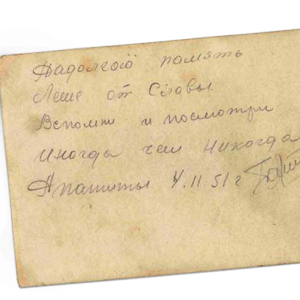 Надолгою память
Леше от Славы
Вспомни и посмотри
иногда чем никогда
Апатиты 4.II.51 г